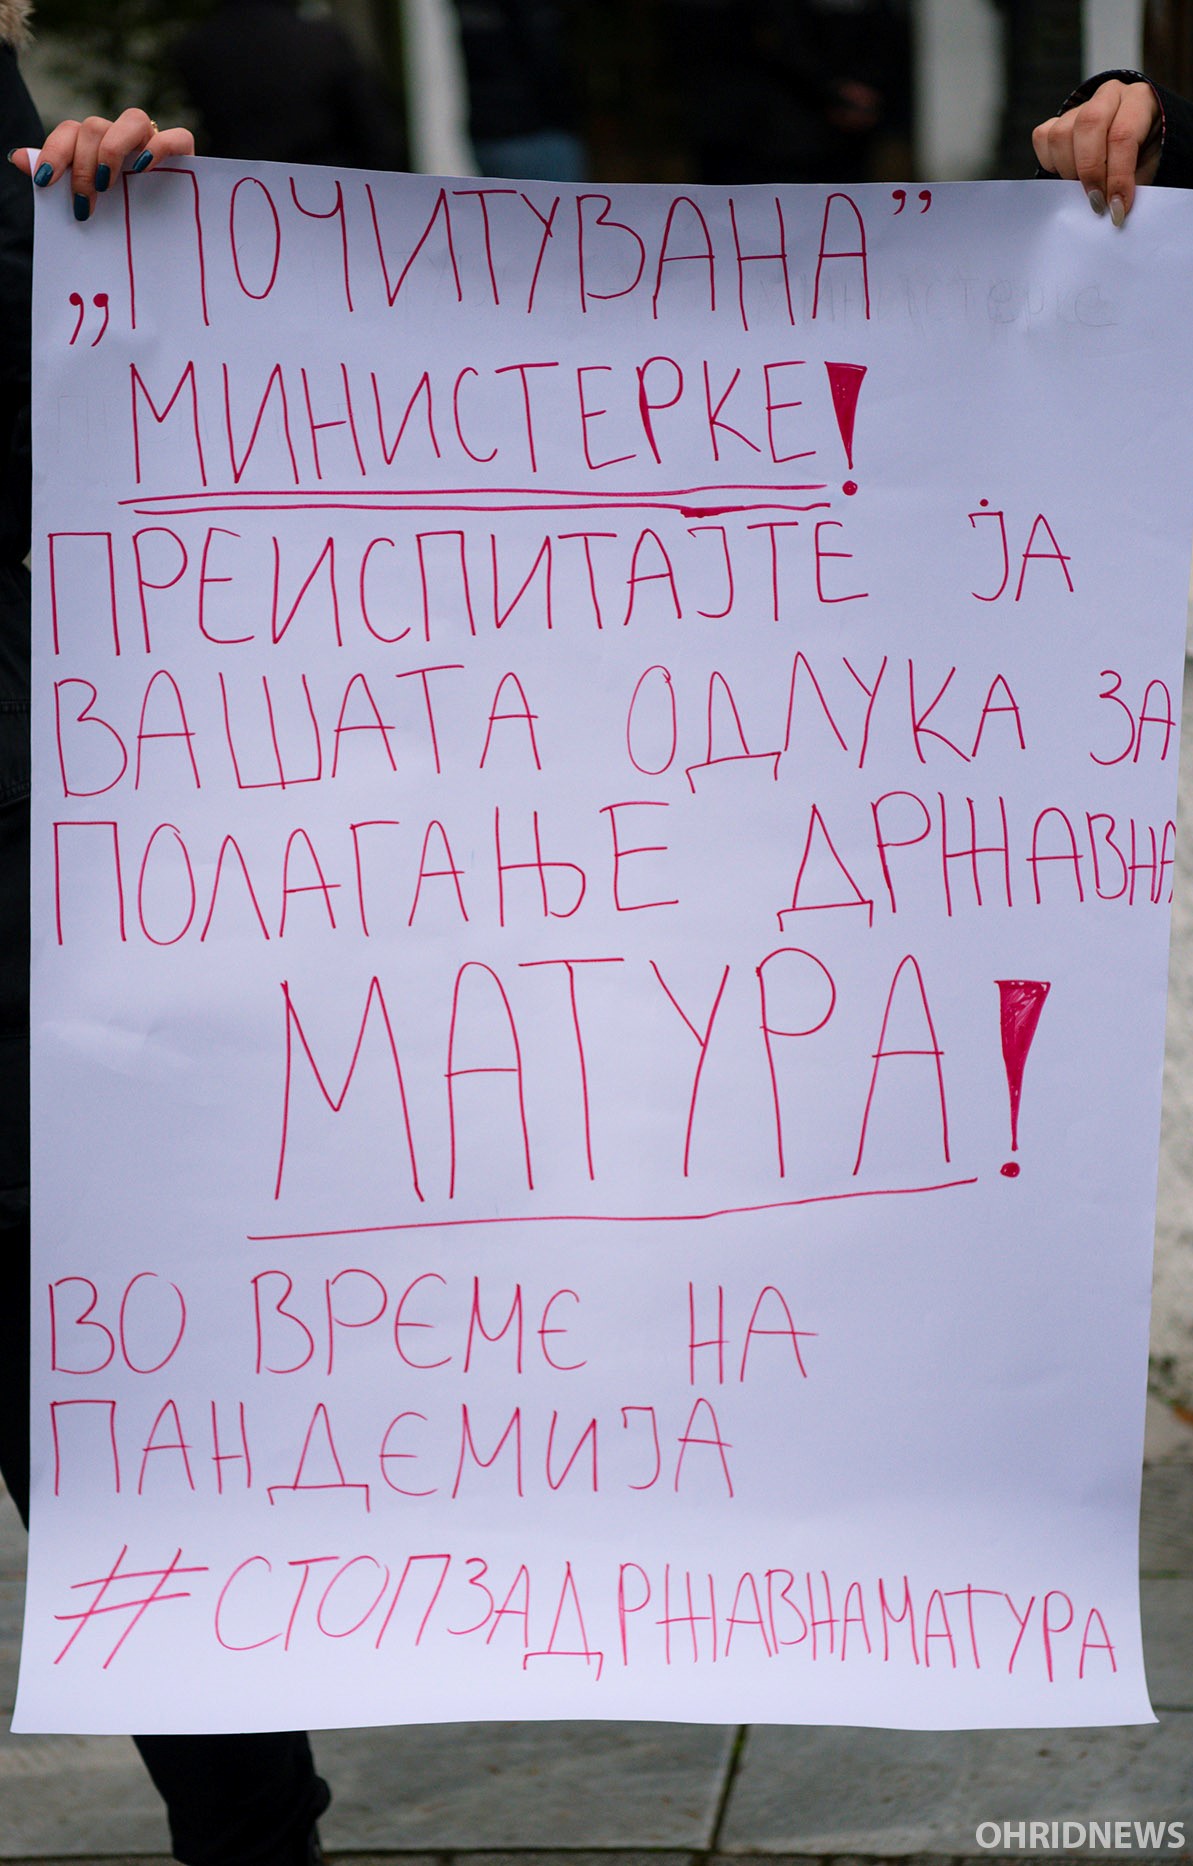 „ПОЧИТУВАНА”
МИНИСТЕРКЕ!
ПРЕИСПИТАЈТЕ ЈА
ВАШАТА ОДЛУКА ЗА
ПОЛАГАЊЕ ДРЖАВНА
МАТУРА!
ВО ВРЕМЕ НА
ПАНДЕМИЈА
#СТОПЗАДРЖАВНАМАТУРА
OHRIDNEWS